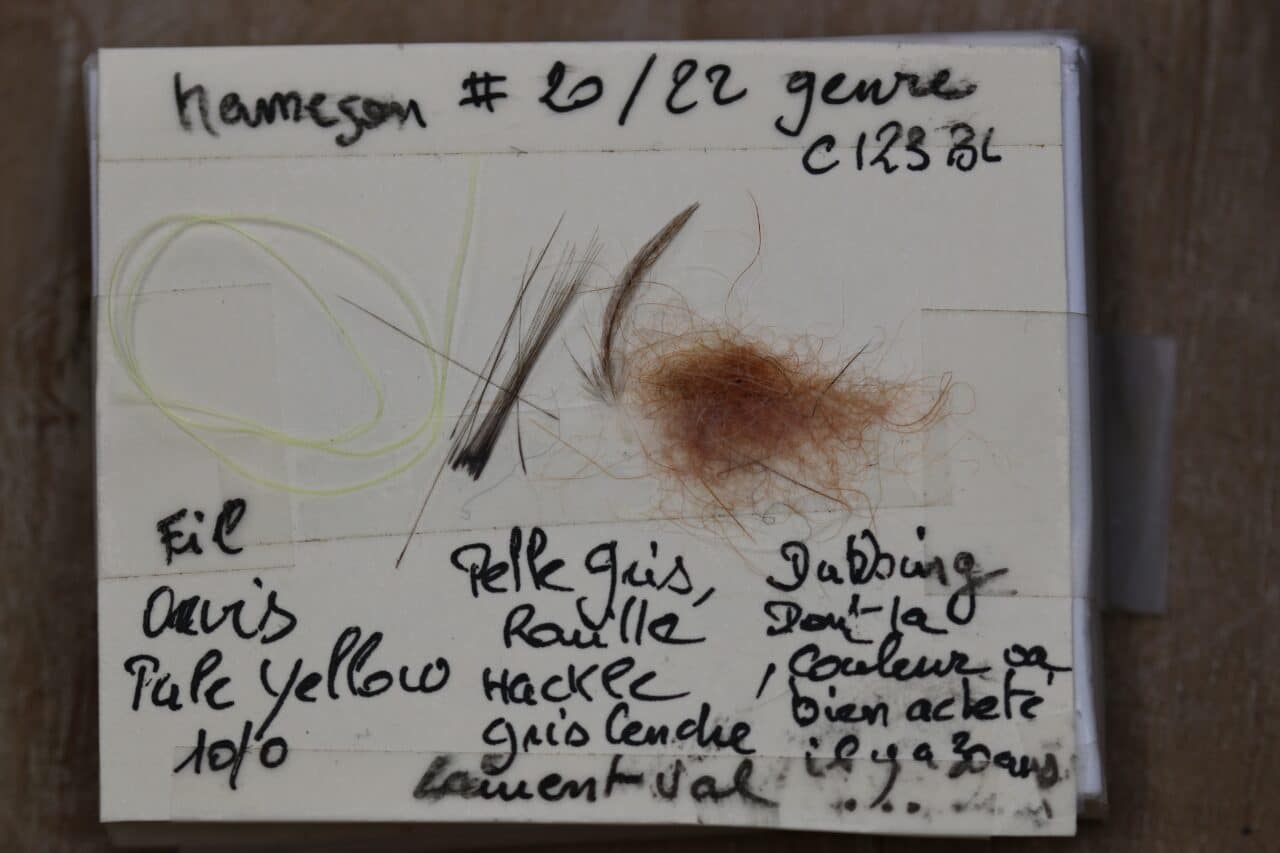 hameçon # 20/22 genre
C123BL
Fil
Orvis
Pale Yellow
10/0
Pelle Gris,
Rouille
Hackle
gris Cendre
Laurent Val
Dubbing
Dont la
couleur va
bien acheté
il y a 30 ans
....